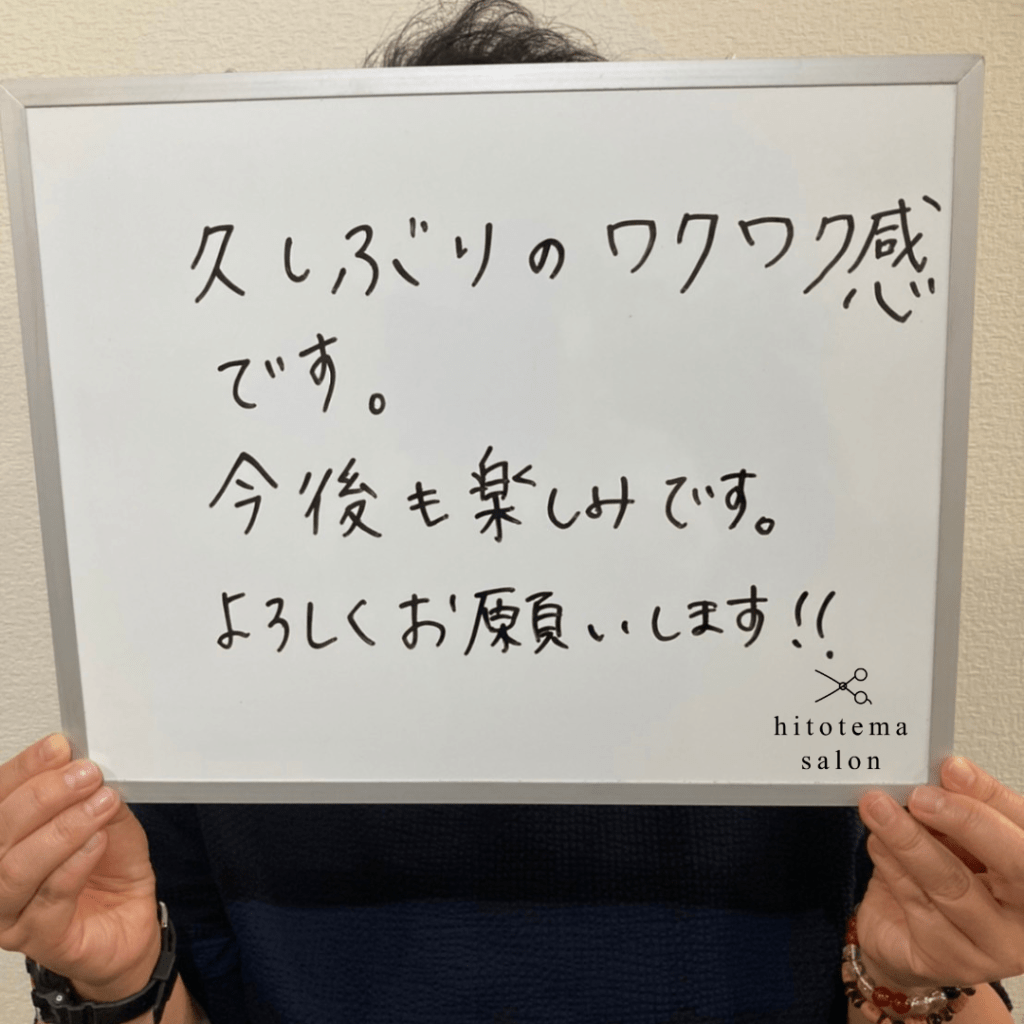 久しぶりのワクワク感
です。
今後も楽しみです。
よろしくお願いします!!
hitotema
salon